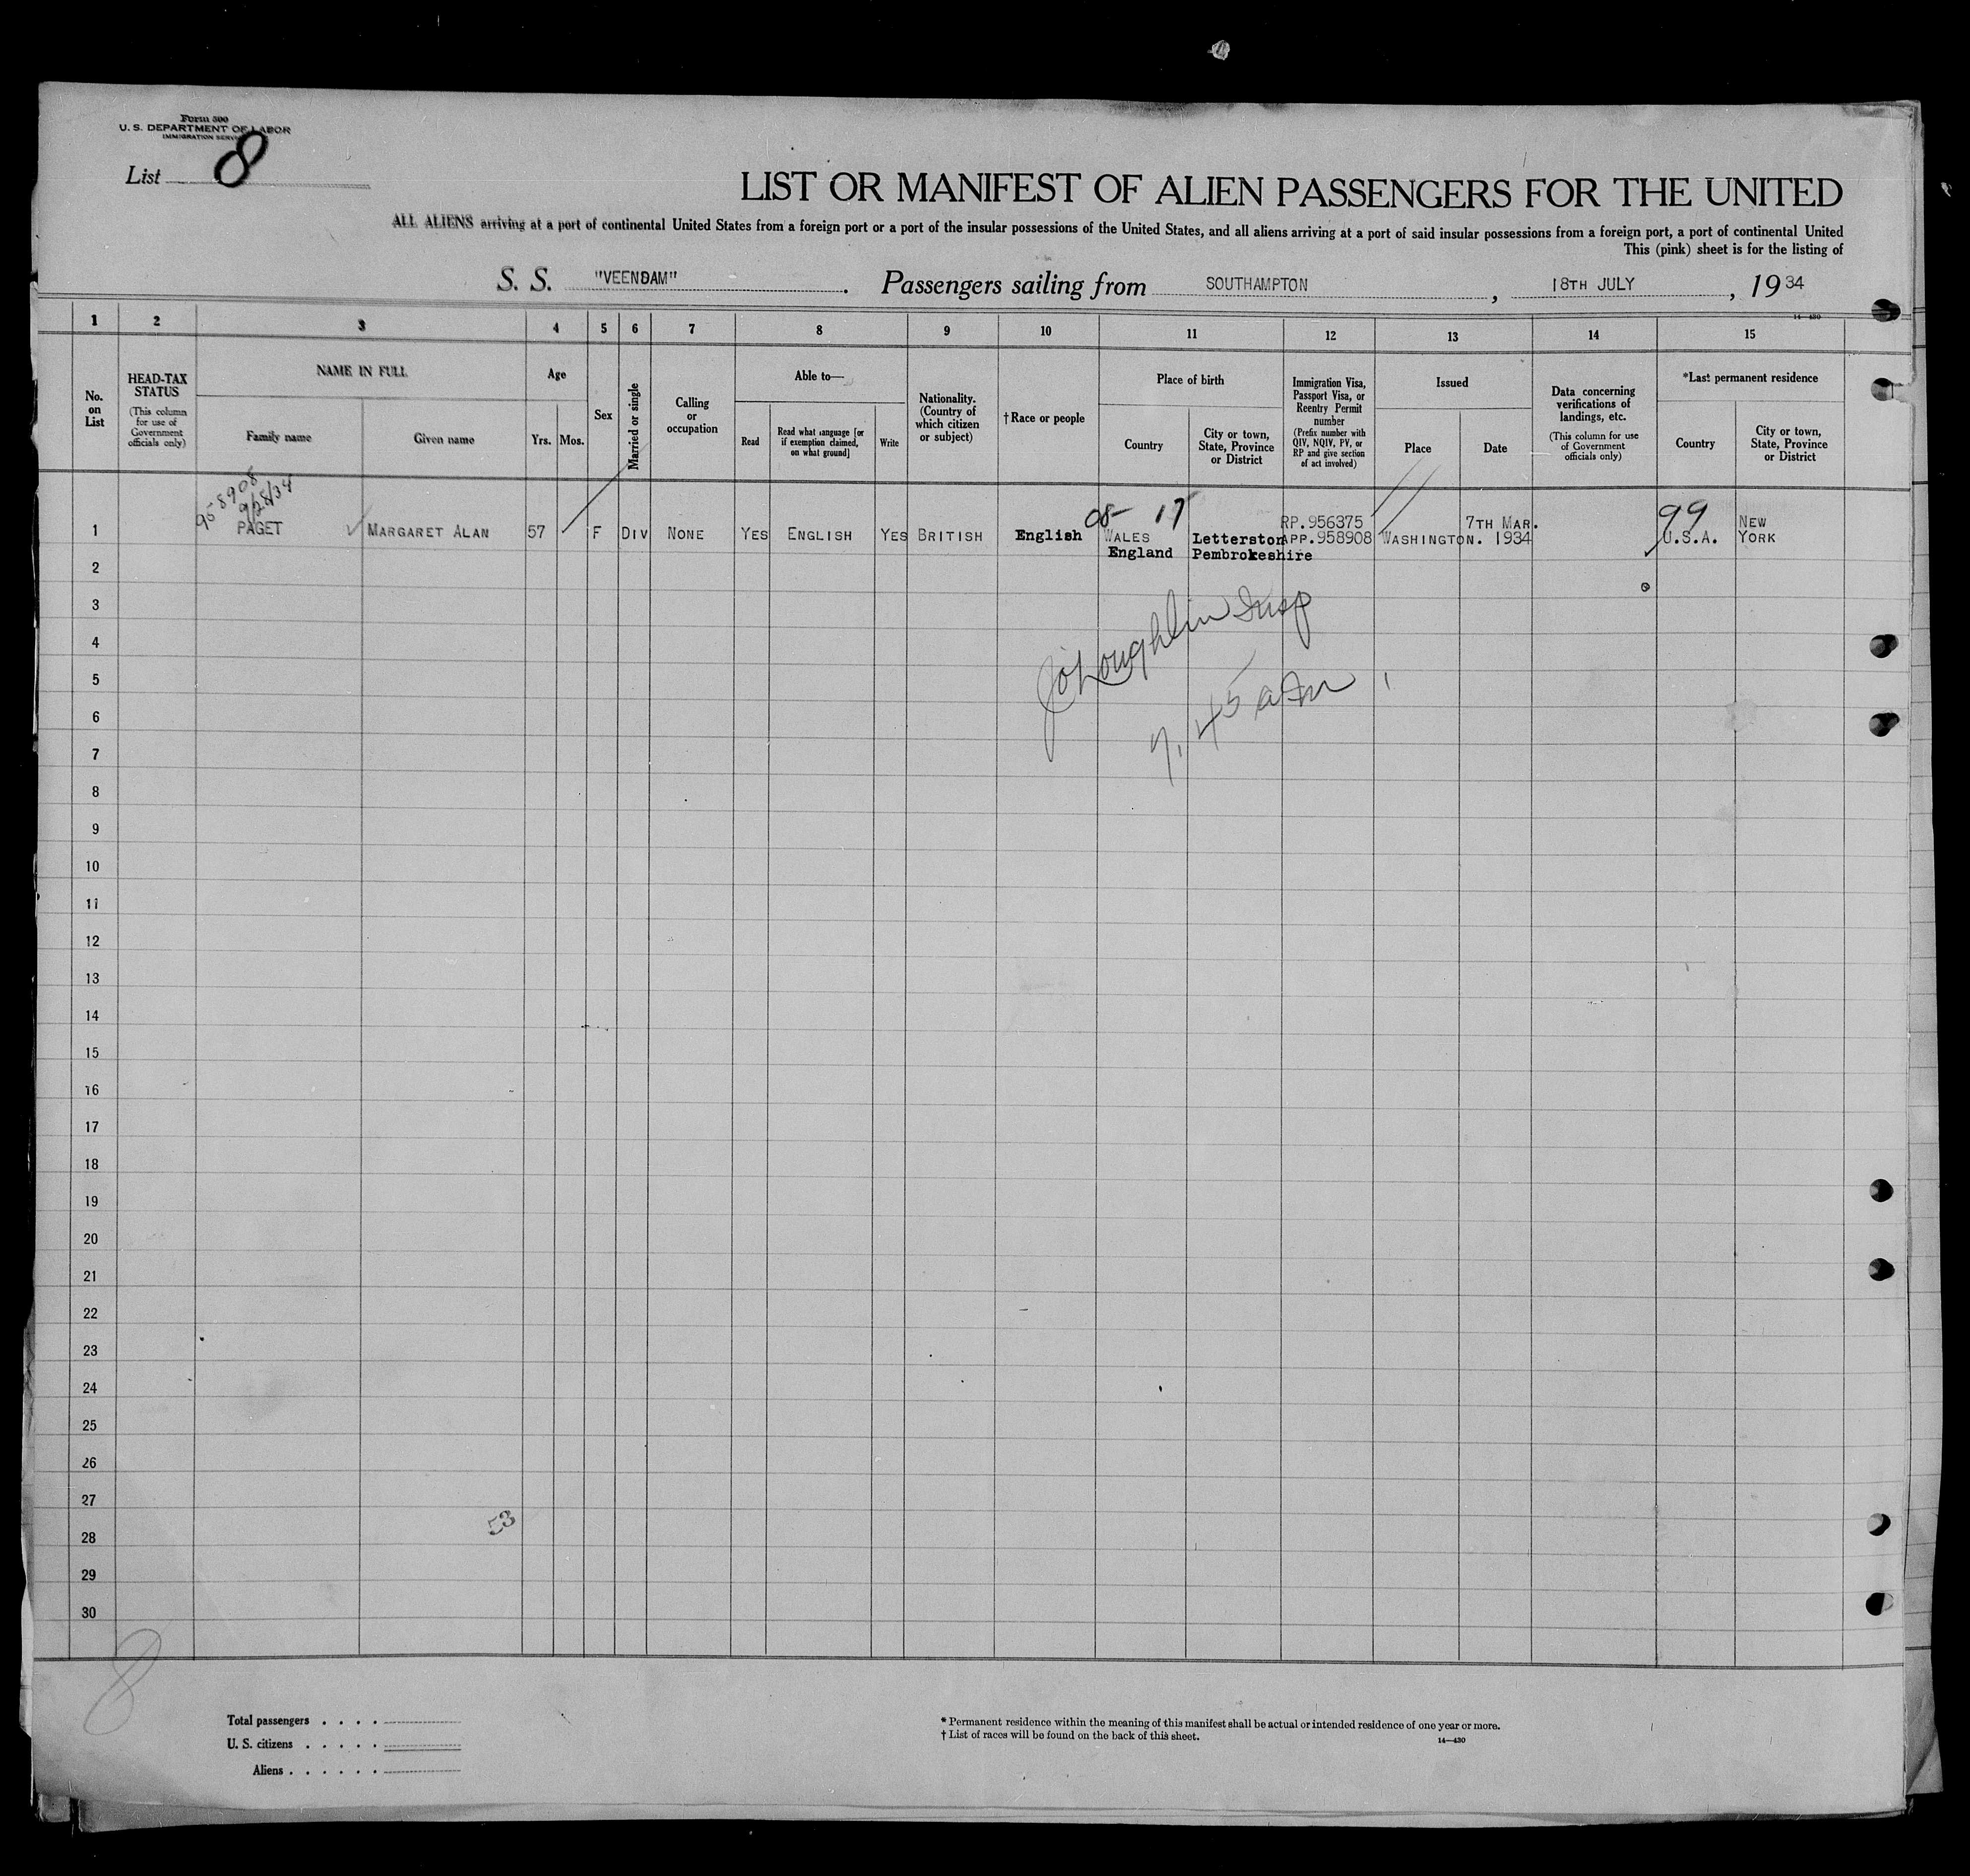 Form 500
U. S. DEPARTMENT OF LABOR
IMMIGRATION SERVICE
List 8
LIST OR MANIFEST OF ALIEN PASSENGERS FOR THE UNITED
ALL ALIENS arriving at a port of continental United States from a foreign port or a port of the insular possessions of the United States, and all aliens arriving at a port of said insular possessions from a foreign port, a port of continental United
This (pink) sheet is for the listing of
S. S. "VEENDAM". Passengers sailing from SOUTHAMPTON, 18TH JULY, 1934
14—430
1 2 3 4 5 6 7 8 9 10 11 12 13 14 15
No. on List
HEAD-TAX STATUS
(This column for use of Government officials only)
NAME IN FULL
Family name
Given name
Age
Yrs.
Mos.
Sex
Married or single
Calling or occupation
Able to—
Read
Read what language [or if exemption claimed, on what ground]
Write
Nationality. (Country of which citizen or subject)
†Race or people
Place of birth
Country
City or town, State, Province or District
Immigration Visa, Passport Visa, or Reentry Permit number
(Prefix number with QIV, NQIV, PV, or RP and give section of act involved)
Issued
Place
Date
Data concerning verifications of landings, etc.
(This column for use of Government officials only)
*Last permanent residence
Country
City or town, State, Province or District
958908
9/28/34
08- 17
99
RP.956375 7TH MAR. NEW
1 PAGET MARGARET ALAN 57 F DIV NONE YES ENGLISH YES BRITISH English WALES Letterston APP.958908 WASHINGTON. 1934 U.S.A. YORK
England Pembrokeshire
2
3
J O'Loughlin Insp
4
5
7.45 am
6
7
8
9
10
11
12
13
14
15
16
17
18
19
20
21
22
23
24
25
26
27
53
28
29
30
8
Total passengers . . . .
U. S. citizens . . . . .
Aliens . . . . . .
* Permanent residence within the meaning of this manifest shall be actual or intended residence of one year or more.
† List of races will be found on the back of this sheet.
14—430